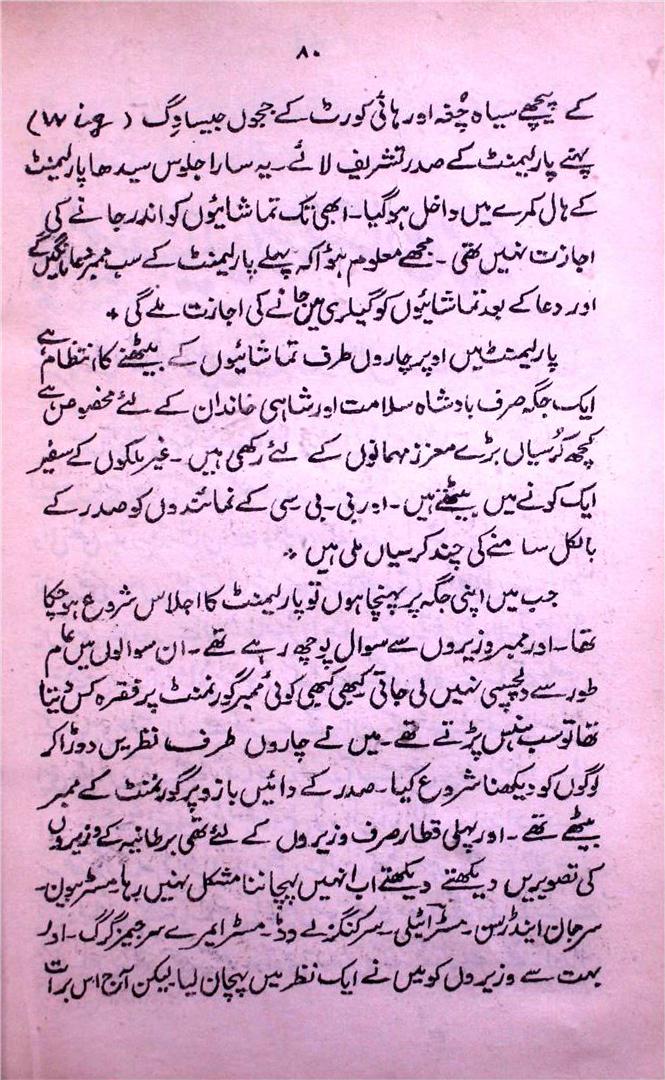 ۸۰
کے پیچھے سیاہ چُغہ اور ہائی کورٹ کے ججوں جیسا وِگ (Wig)
پہنے پارلیمنٹ کے صدر تشریف لائے۔ یہ سارا جلوس سیدھا پارلیمنٹ
کے ہال کمرے میں داخل ہو گیا۔ ابھی تک تماشائیوں کو اندر جانے کی
اجازت نہیں تھی۔ مجھے معلوم ہؤا کہ پہلے پارلیمنٹ کے سب ممبر دعا مانگیں گے
اور دعا کے بعد تماشائیوں کو گیلری میں جانے کی اجازت ملے گی +
پارلیمنٹ میں اوپر چاروں طرف تماشائیوں کے بیٹھنے کا انتظام ہے
ایک جگہ صرف بادشاہ سلامت اور شاہی خاندان کے لئے مخصوص ہے
کچھ کُرسیاں بڑے معزز مہمانوں کے لئے رکھی ہیں۔ غیر ملکوں کے سفیر
ایک کونے میں بیٹھتے ہیں۔ اور بی۔ بی سی کے نمائندوں کو صدر کے
بالکل سامنے کی چند کرسیاں ملی ہیں +
جب میں اپنی جگہ پر پہنچا ہوں تو پارلیمنٹ کا اجلاس شروع ہو چکا
تھا۔ اور ممبر وزیروں سے سوال پوچھ رہے تھے۔ ان سوالوں میں عام
طور سے دلچسپی نہیں لی جاتی کبھی کبھی کوئی ممبر گورنمنٹ پر فقرہ کس دیتا
تھا تو سب ہنس پڑتے تھے۔ میں نے چاروں طرف نظریں دوڑا کر
لوگوں کو دیکھنا شروع کیا۔ صدر کے دائیں بازو پر گورنمنٹ کے ممبر
بیٹھے تھے۔ اور پہلی قطار صرف وزیروں کے لئے تھی برطانیہ کے وزیروں
کی تصویریں دیکھتے دیکھتے اب انہیں پہچاننا مشکل نہیں رہا۔ مسٹر بیون۔
سر جان اینڈرسن۔ مسٹر ایٹلی۔ سر کنگزلے وڈ۔ مسٹر ایمرے سر جیمز گرگ۔ اور
بہت سے وزیروں کو میں نے ایک نظر میں پہچان لیا لیکن آج اس برات